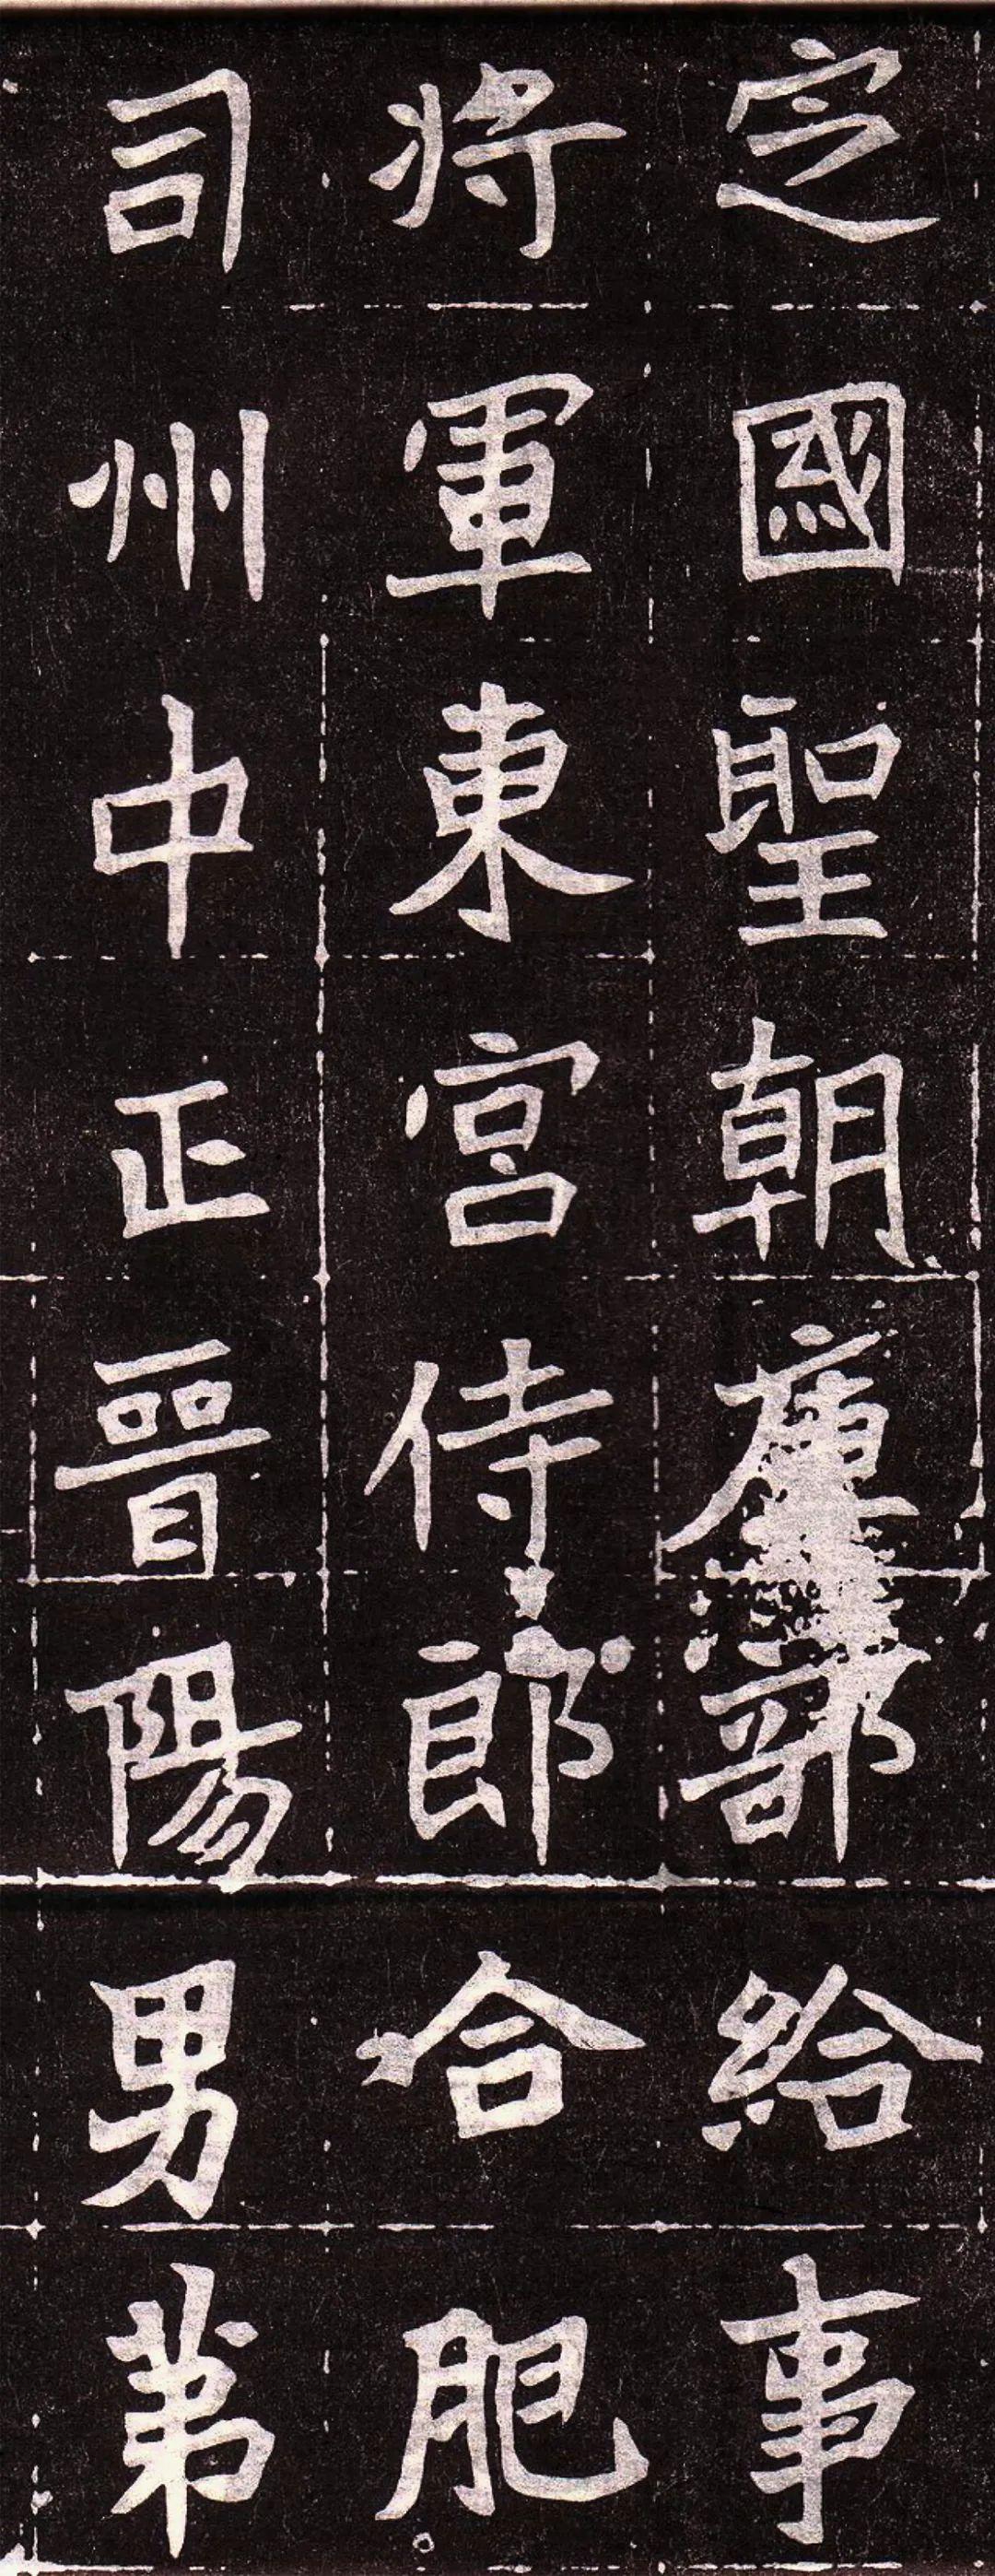 定國聖朝庫部給事
將軍東宮侍郎合肥
司州中正晉陽男苐